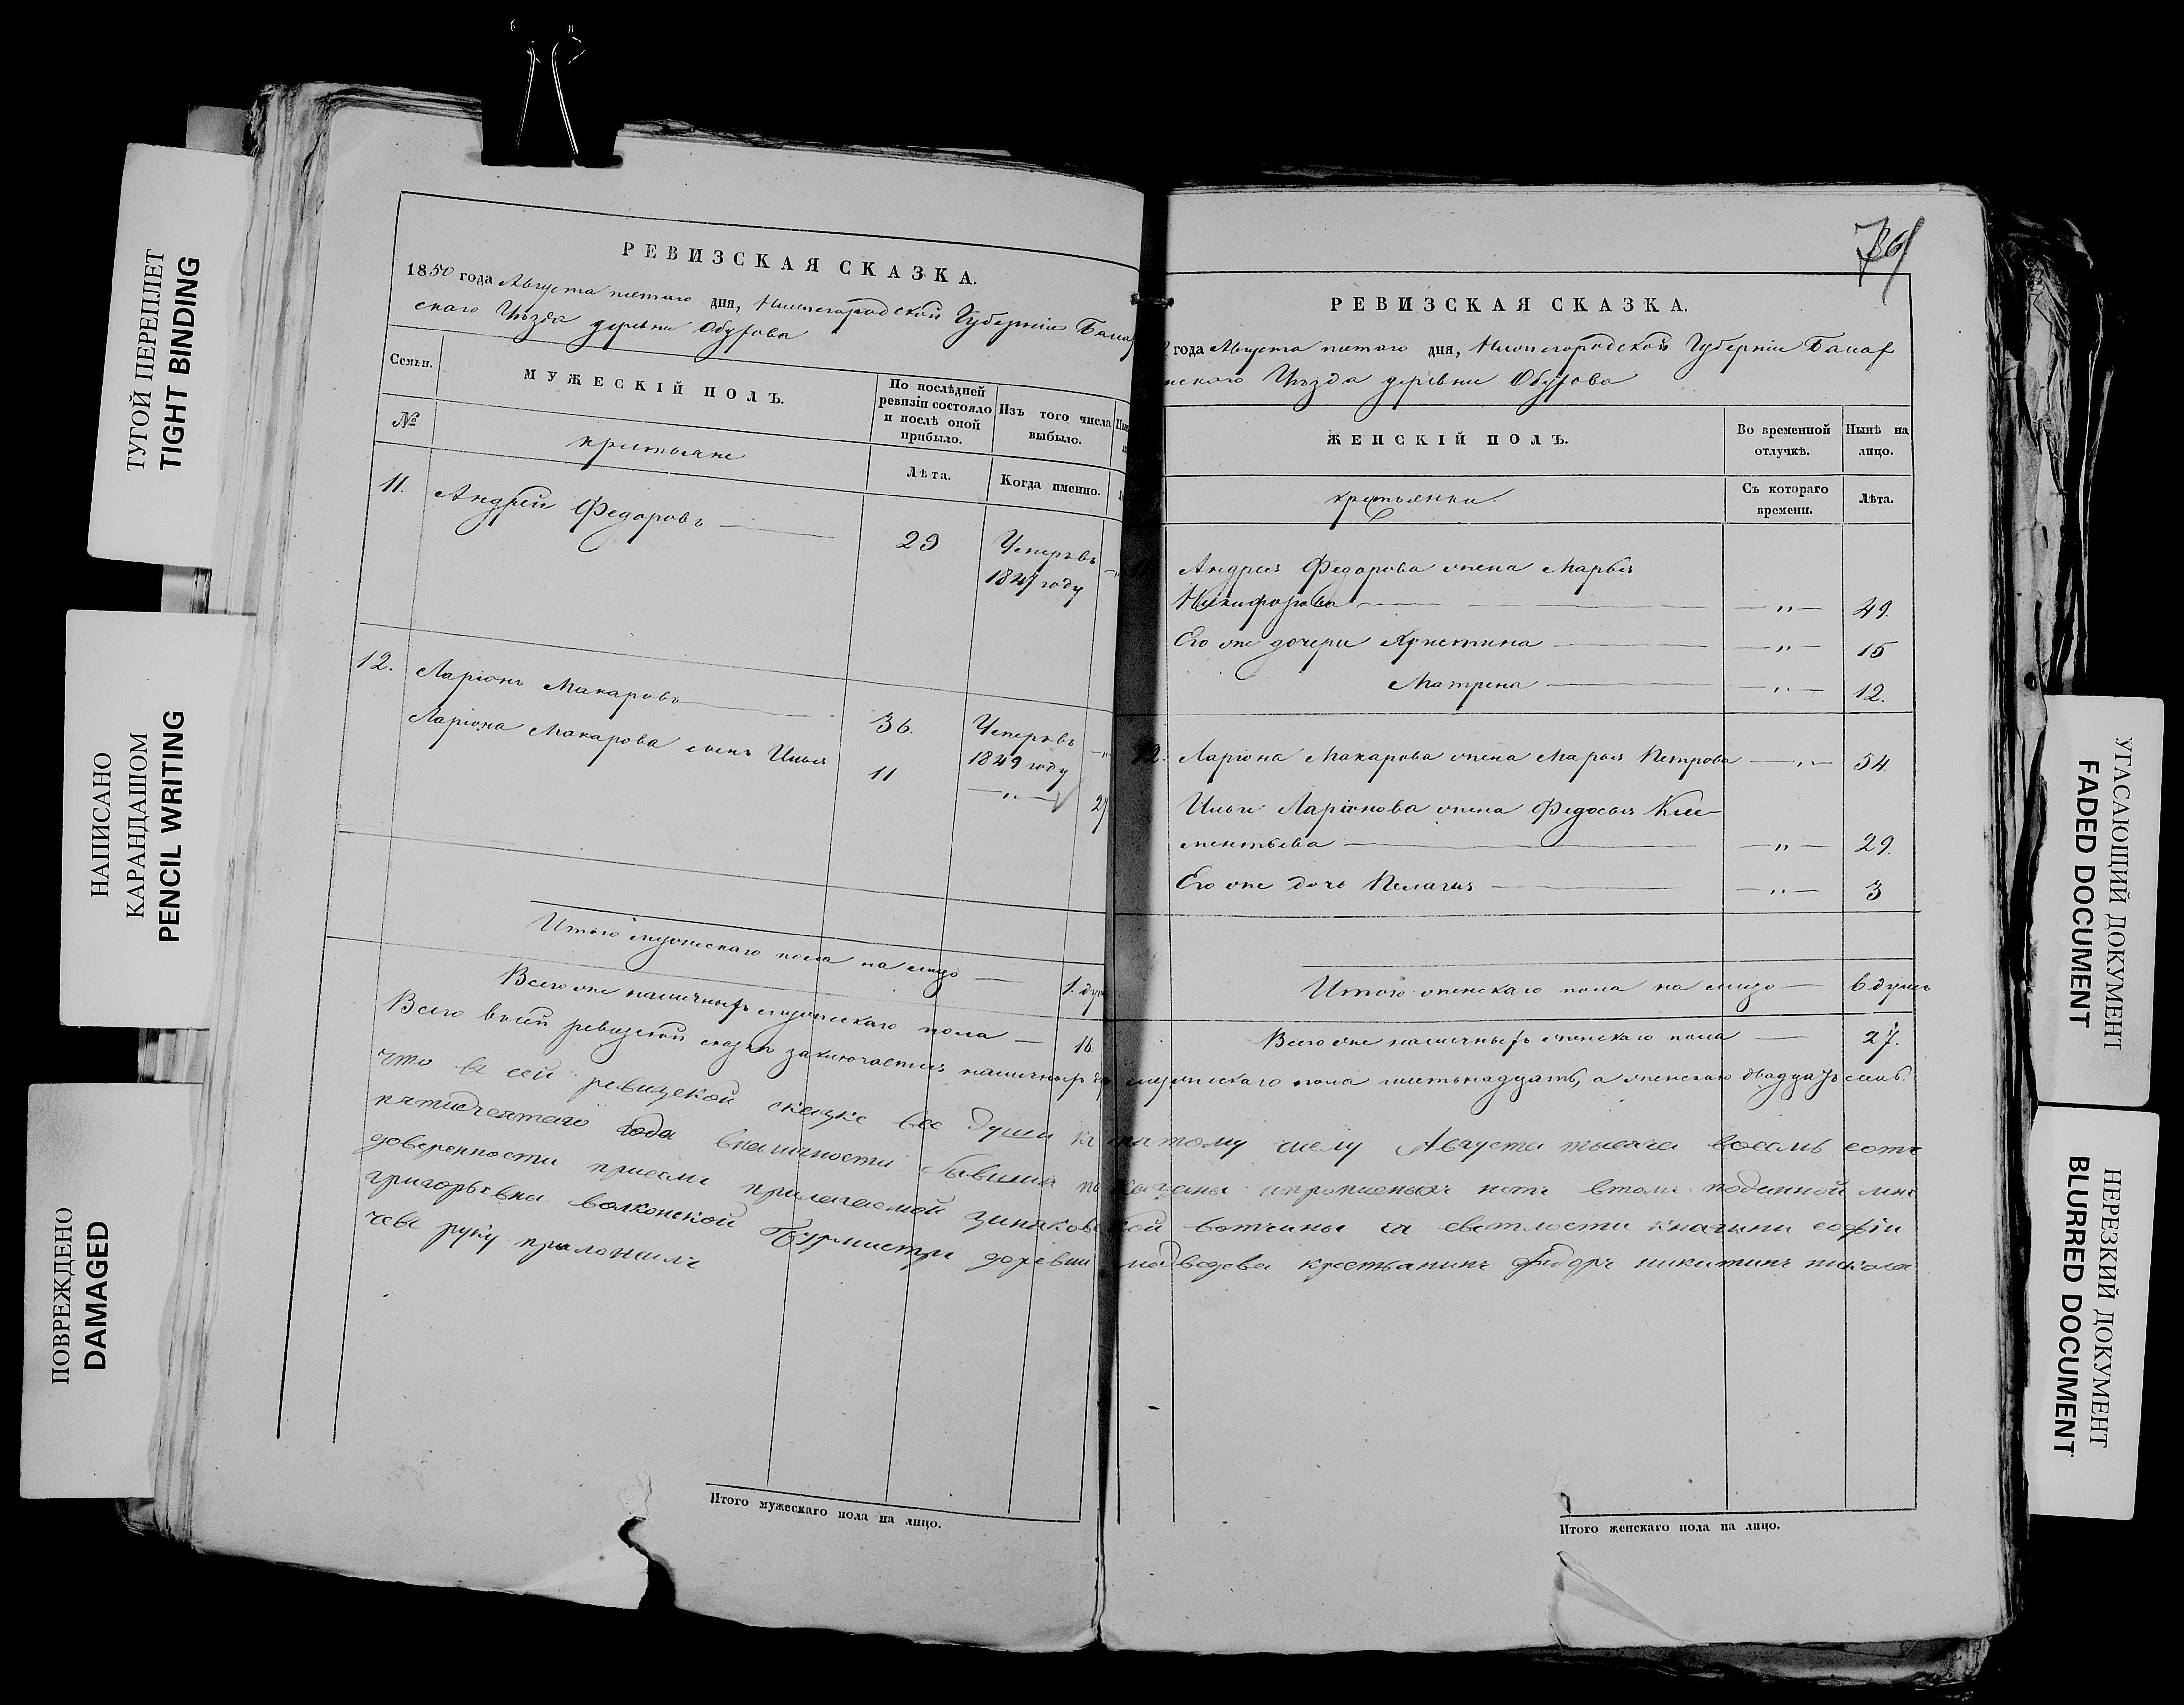 ТУГОЙ ПЕРЕПЛЕТ
TIGHT BINDING
НАПИСАНО
КАРАНДАШОМ
PENCIL WRITING
ПОВРЕЖДЕНО
DAMAGED
РЕВИЗСКАЯ СКАЗКА.
1850 года Августа пятаго дня, Нижегородской Губерніи Балах
скаго Уѣзда деревни Обухова
Семьи. МУЖЕСКІЙ ПОЛЪ. По послѣдней ревизіи состояло и послѣ оной прибыло. Изъ того числа выбыло.
№ крестьяне Лѣта. Когда именно.
11. Андрей Федоровъ 29 Умеръ въ
1847 году
12. Ларіонъ Макаровъ 36. Умеръ въ
1849 году
Ларіона Макарова сынъ Илья 11 27
Итого мужескаго пола на лицо 1. ду
Всего же наличныхъ мужескаго пола 16
Всего в сей ревизской сказки заключается наличныхъ
что в сей ревизской сказке все души к
пятидесятаго года вналичности бывшия по
доверенности приеми прилагаемой
григорьевны волконской Бурмистръ деревни
чевъ руку приложилъ
Итого мужескаго пола на лицо.
76
РЕВИЗСКАЯ СКАЗКА.
года Августа пятаго дня, Нижегородской Губерніи Балах
нскаго Уѣзда деревни Обухова
ЖЕНСКІЙ ПОЛЪ. Во временной отлучкѣ. Нынѣ на лицо.
крестьянки. Съ котораго времени. Лѣта.
Андрея Федорова жена Марья
Никифорова „ 49.
Его же дочери Христина „ 15
Матрена „ 12.
12. Ларіона Макарова жена Марья Петрова „ 54.
Ильи Ларіонова жена Федосья Кле-
ментьева „ 29.
Его же дочь Пелагия „ 3
Итого женскаго пола на лицо 6 душъ
Всего же наличныхъ женскаго пола 27.
мужескаго пола шестьнадцать, а женскаго двадцать семь.
пятому числу Августа тысяча восемь сотъ
казаны ипрописныхъ нетъ втомъ поданной мне
вотчины ея светлости княгини софiи
медведева крестьянинъ федоръ никитинъ никола
Итого женскаго пола на лицо.
УГАСАЮЩИЙ ДОКУМЕНТ
FADED DOCUMENT
НЕРЕЗКИЙ ДОКУМЕНТ
BLURRED DOCUMENT